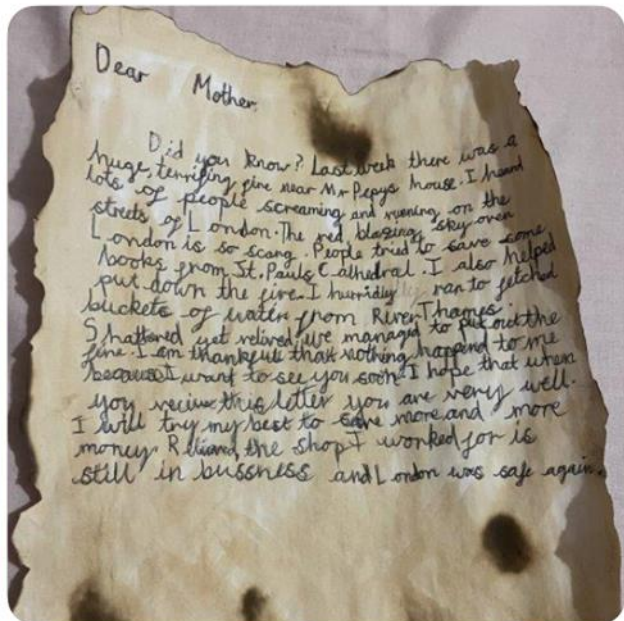 Dear Mother,
Did you know? Last week there was a
huge, terrifing fire near Mr Pepys house. I heard
lots of people screaming and running on the
streets of London. The red, blazing sky over
London is so scary. People tried to save some
books from St. Pauls Cathedral. I also helped
put down the fire. I hurridley ran to fetched
buckets of water from River Thames.
Shattered yet relived, we managed to put out the
fire. I am thankfull that nothing happend to me
because I want to see you soon. I hope that when
you recive this letter you are very well.
I will try my best to save more and more
money. the shop I worked for is
still in bussness and London was safe again.